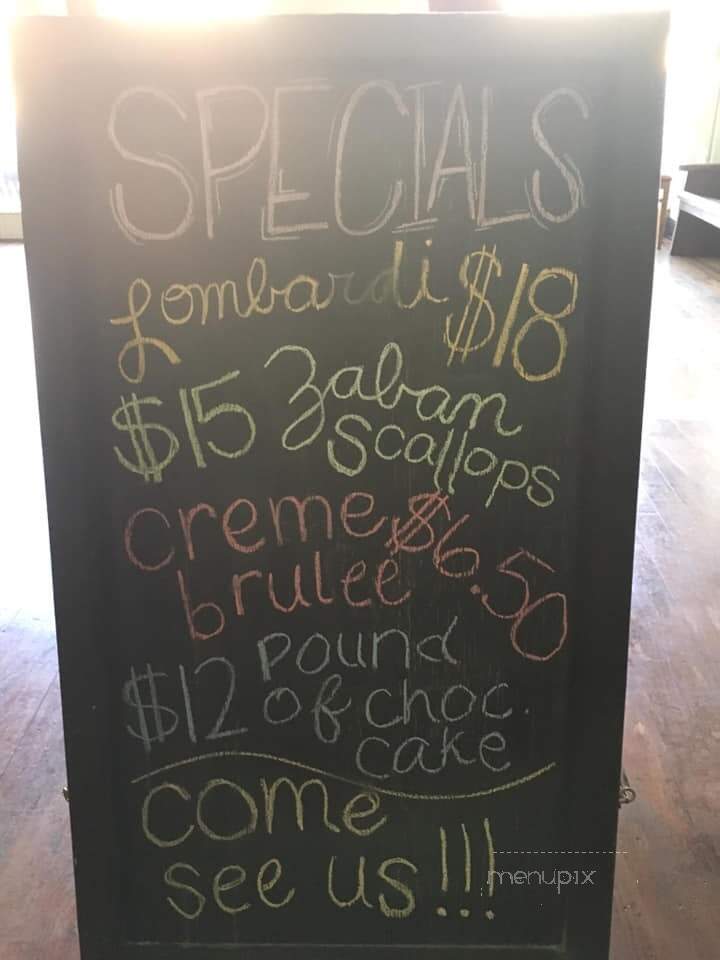 SPECIALS
Lombardi $18
$15 Zaban
Scallops
creme $6.50
brulee
$12 pound
of choc.
cake
come
see us!!!
menupix